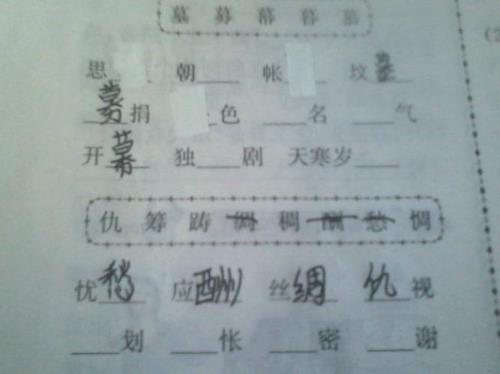 墓 募 幕 暮 慕
思___ 朝___ 帐___ 坟墓
募捐 ___色 ___名 ___气
开幕 独___剧 天寒岁___
仇 筹 踌 绸 稠 酬 愁 惆
忧愁 应酬 丝绸 仇视
___划 ___怅 ___密 ___谢